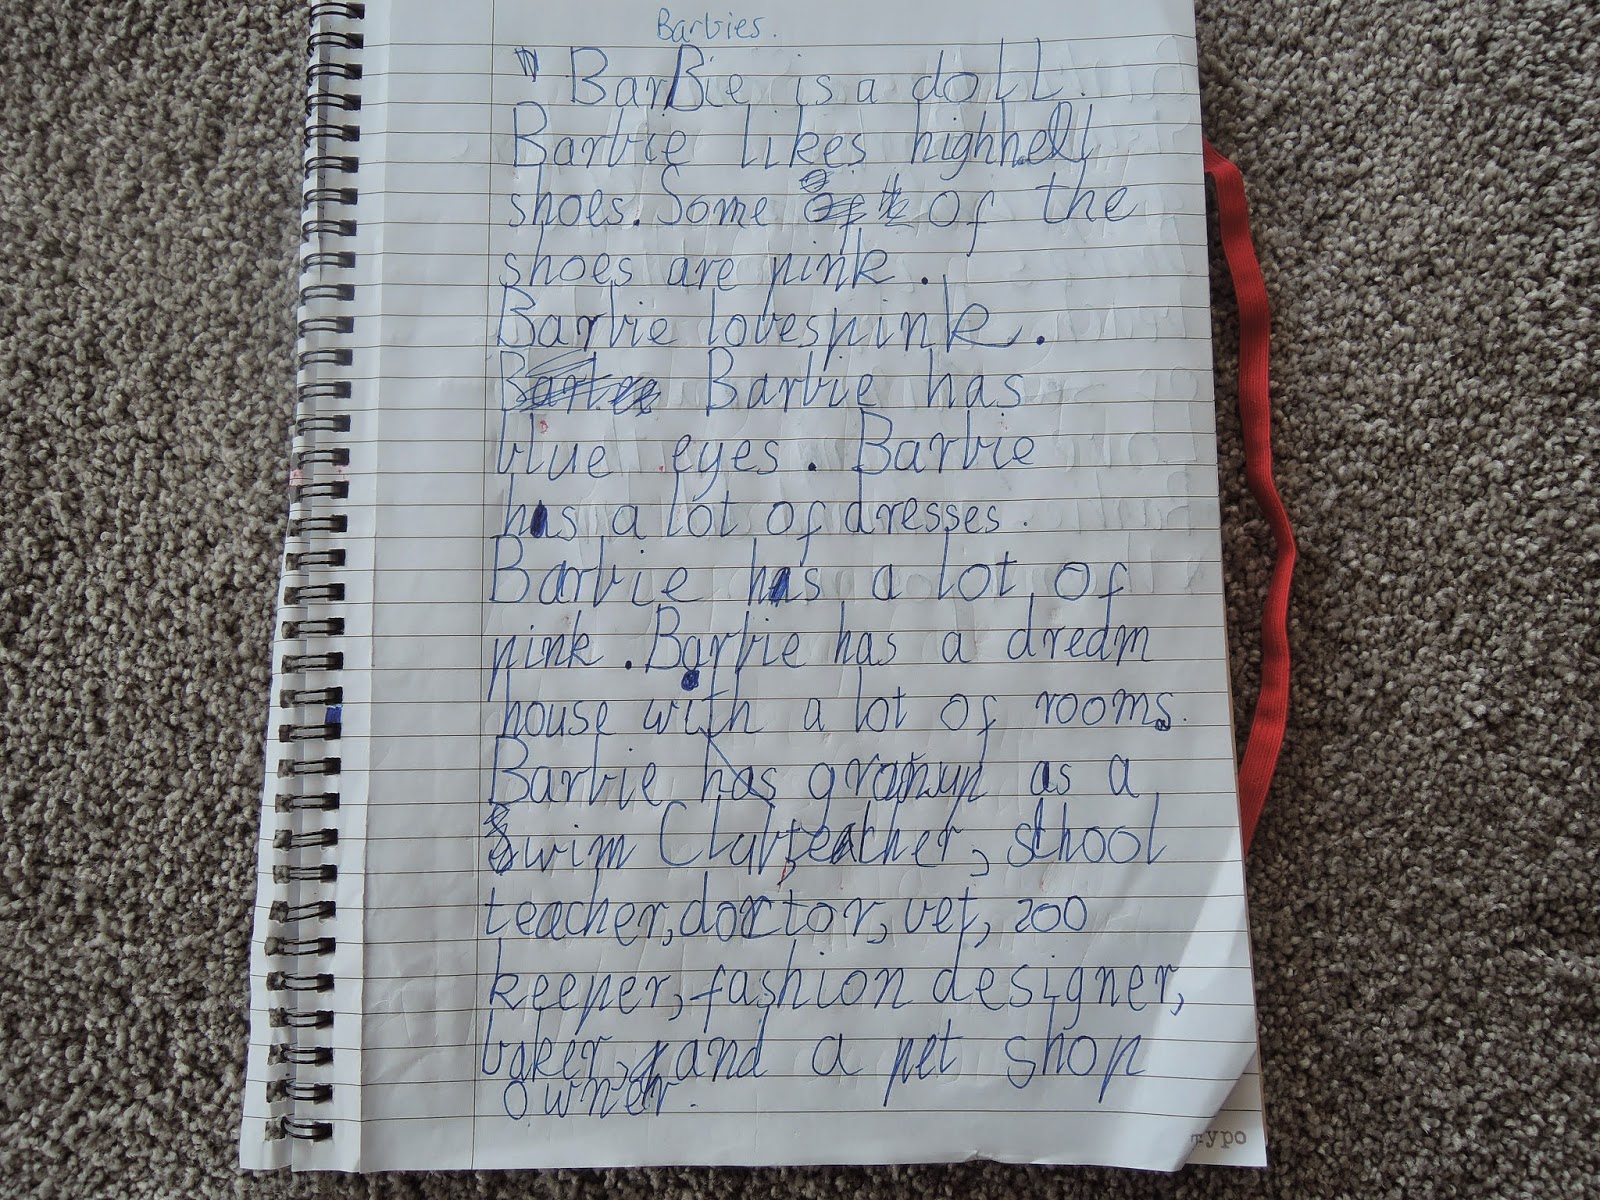 Barbies.
BarBie is a doll.
Barbie likes highhell
shoes. Some of the
shoes are pink.
Barbie lovespink.
Barbie has
blue eyes. Barbie
has a lot of dresses.
Barbie has a lot of
pink. Barbie has a dream
house with a lot of rooms.
Barbie has as a
Swim Clubteacher, school
teacher, doctor, vet, zoo
keeper, fashion designer,
baker, and a pet shop
owner.
typo